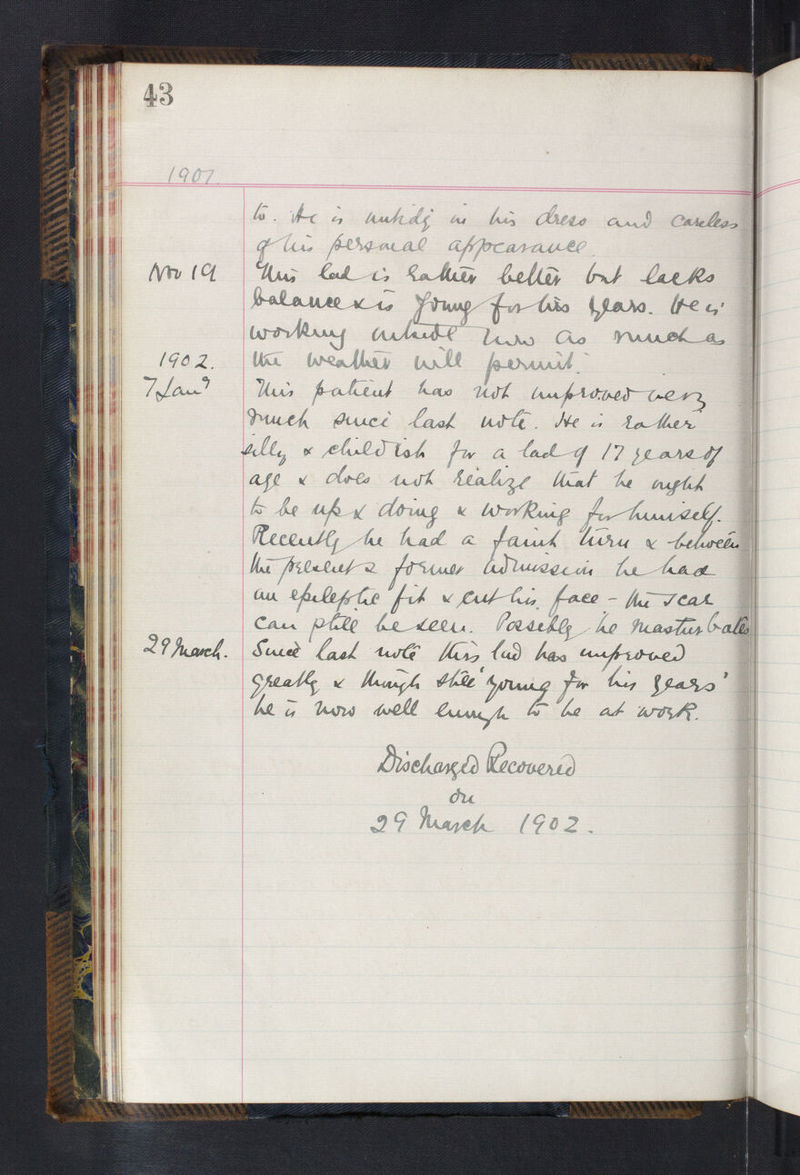 43
1901
to. He is untidy in his dress and careless
of his personal appearance.
Nov 19 This lad is rather better but lacks
balance & is young for his years. He is
working outside now as much as
1902. the weather will permit.
7 Jany This patient has not improved very
much since last note. He is rather
silly & childish for a lad of 17 years of
age & does not realize that he ought
to be up & doing & working for himself.
Recently he had a faint turn & between
the present & former admission he had
an epileptic fit & cut his face - the scar
can still be seen. Possibly he masturbates
29 March. Since last note this lad has improved
greatly & though still 'young for his years'
he is now well enough to be at work.
Discharged Recovered
on
29 March 1902.